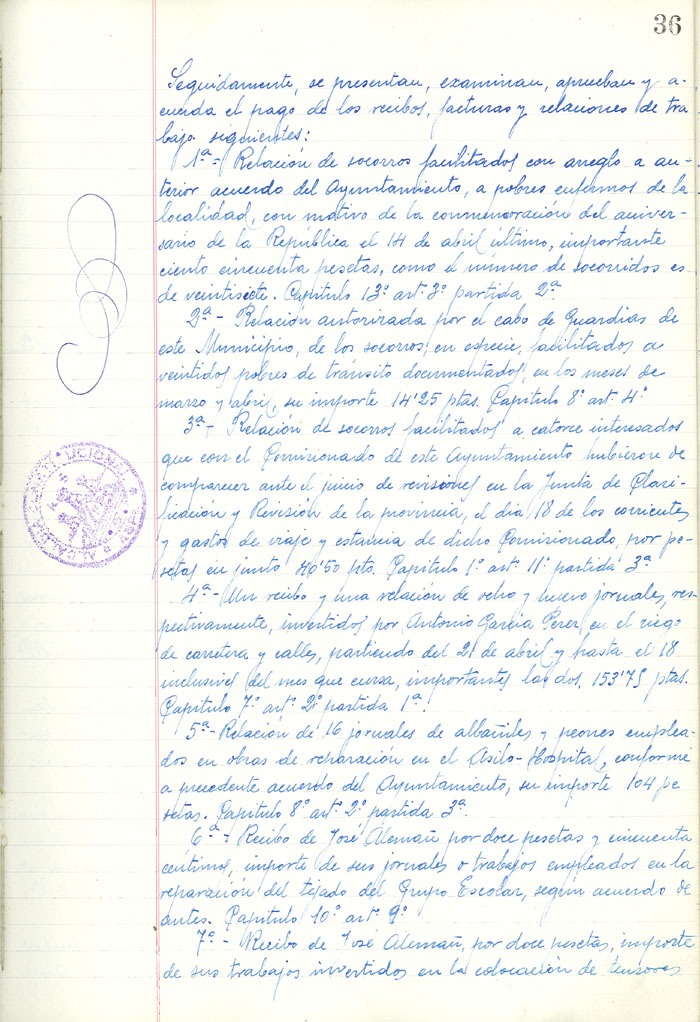 36
Seguidamente, se presentan, examinan, aprueban y a-
cuerda el pago de los recibos, facturas y relaciones de tra
bajo siguientes:
1ª- Relación de socorros facilitados con arreglo a an-
terior acuerdo del Ayuntamiento, a pobres enfermos de la
localidad, con motivo de la conmemoración del aniver-
sario de la República el 14 de abril último, importante
ciento cincuenta pesetas, como el número de socorridos es
de veintisiete. Capítulo 13º artº 3º partida 2ª
2ª- Relación autorizada por el cabo de Guardias de
este Municipio, de los socorros, en especie, facilitados a
veintidos pobres de tránsito documentados, en los meses de
marzo y abril, su importe 14'25 ptas. Capítulo 8º artº 4º
3ª- Relación de socorros facilitados a catorce interesados
que con el Comisionado de este Ayuntamiento hubieron de
comparecer ante el juicio de revisiones en la Junta de Clasi-
ficación y Revisión de la provincia, el día 18 de los corrientes
y gastos de viaje y estancia de dicho Comisionado, por pe-
setas en junto 40'50 pts. Capítulo 1º artº 11º partida 3ª
4ª- Un recibo y una relación de ocho y nueve jornales, res-
pectivamente, invertidos por Antonio García Perez, en el riego
de carretera y calles, partiendo del 21 de abril y hasta el 18
inclusives del mes que cursa, importantes las dos, 153'75 ptas.
Capítulo 7º artº 2º partida 1ª.
5ª- Relación de 16 jornales de albañiles y peones emplea-
dos en obras de reparación en el Asilo-Hospital, conforme
a precedente acuerdo del Ayuntamiento, su importe 104 pe
setas. Capítulo 8º artº 2º partida 3ª.
6ª- Recibo de José Alemañ por doce pesetas y cincuenta
céntimos, importe de sus jornales o trabajos empleados en la
reparación del tejado del Grupo Escolar, según acuerdo de
antes. Capítulo 10º artº 9º
7ª- Recibo de José Alemañ, por doce pesetas, importe
de sus trabajos invertidos en la colocación de tensores